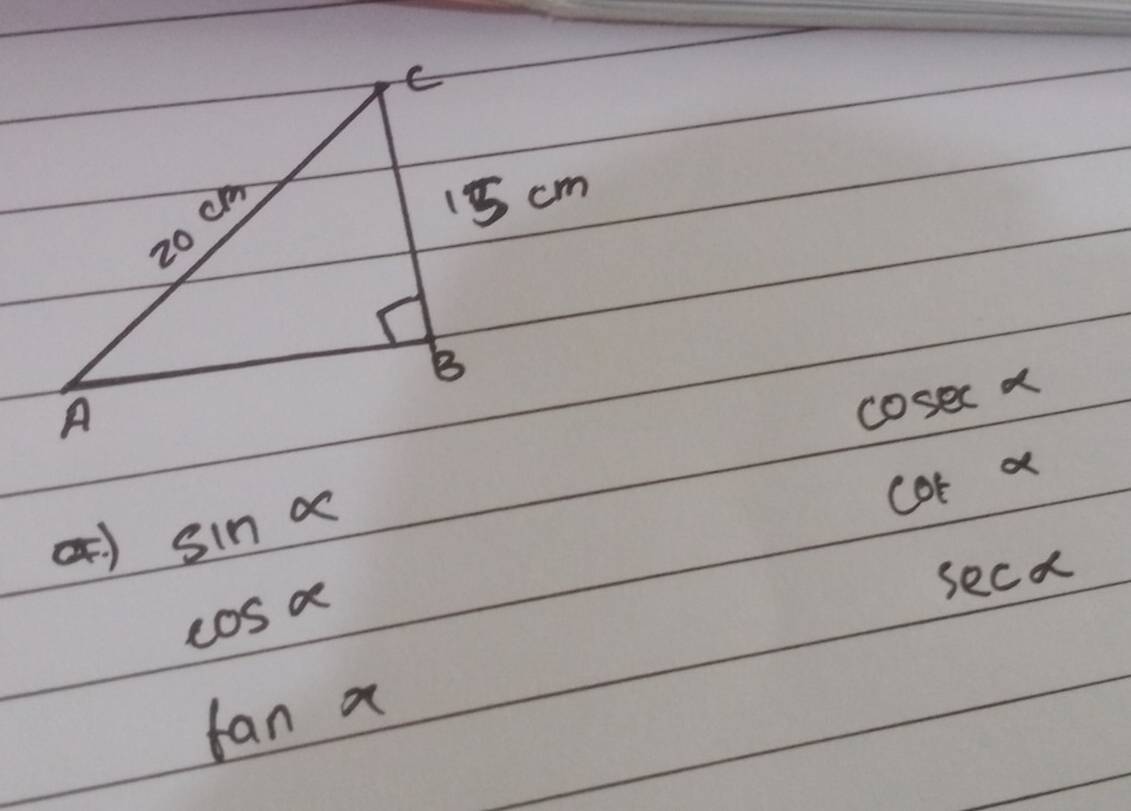 C
20 cm
15 cm
A
B
sin α
cos α
tan α
cosec α
cot α
sec α